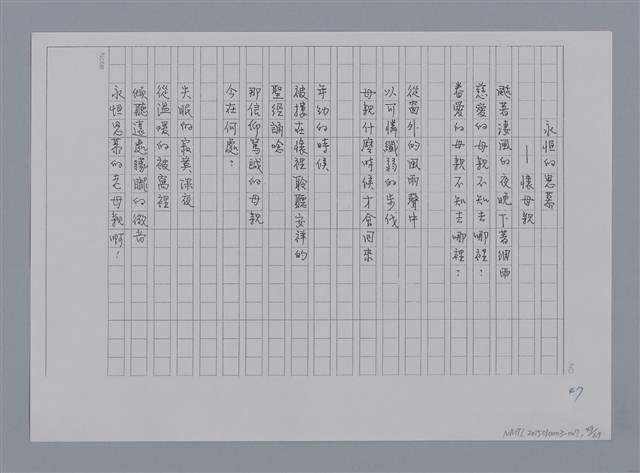 永恒的思慕
—懷母親
颳著淒風的夜晚下著細雨
慈愛的母親不知去哪裡？
眷愛的母親不知去哪裡？
從窗外的風雨聲中
以可憐纖弱的步伐
母親什麼時候才會回來
年幼的時候
被摟在懷裡聆聽安祥的
聖經誦唸
那信仰篤誠的母親
今在何處？
失眠的寂寞深夜
從溫暖的被窩裡
傾聽遠處朦朧的微音
永恒思慕的老母親啊！
47